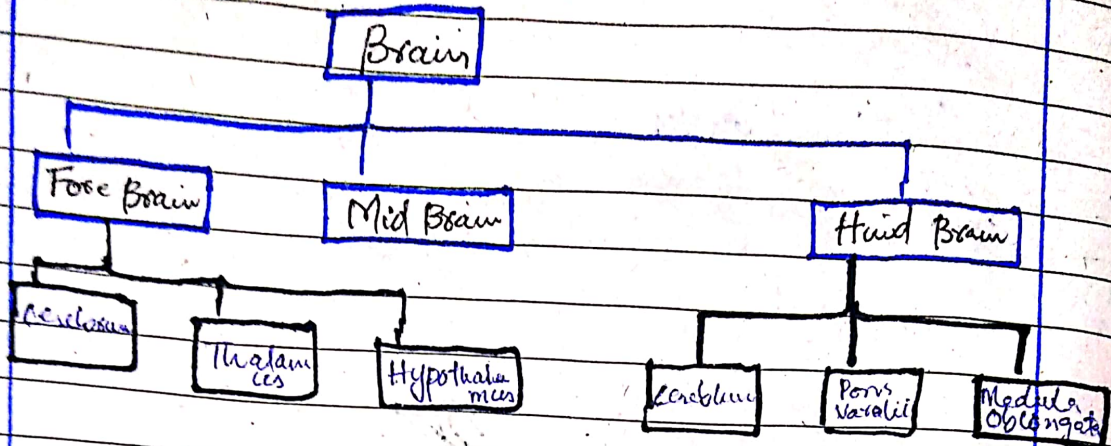 Brain
Fore Brain
Mid Brain
Hind Brain
Cerebrum
Thalam
us
Hypothala
mus
Pons
Varolii
Medula
Oblongata